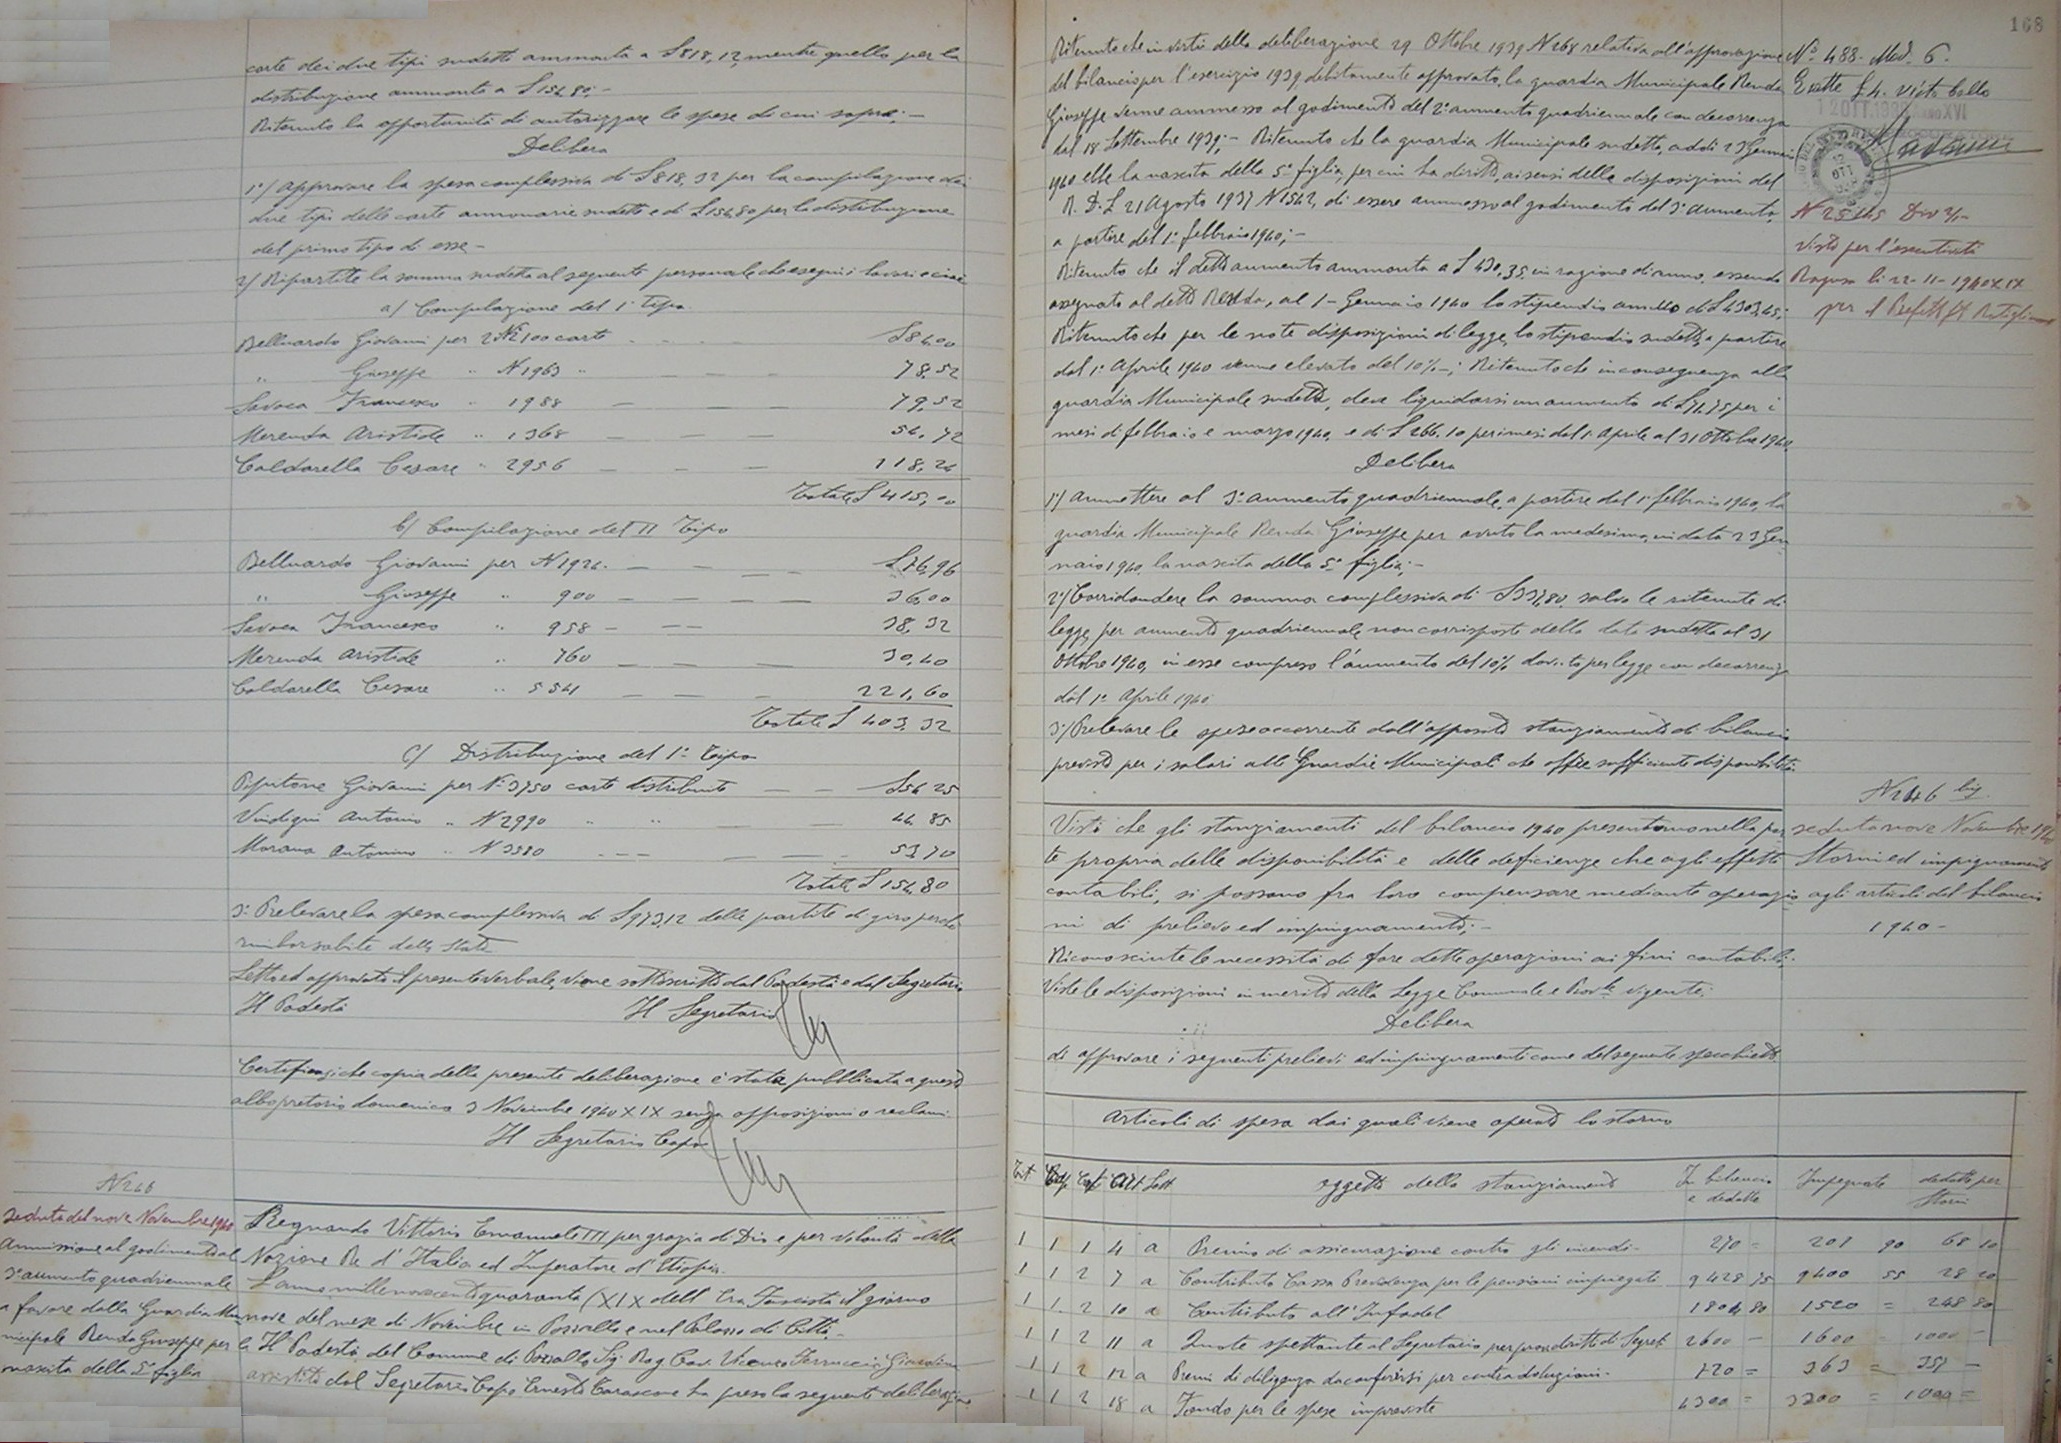 carte dei due tipi sudetti ammonta a £ 818,12, mentre quello per la
distribuzione ammonta a £ 154.80;-
Ritenuto la opportunità di autorizzare le spese di cui sopra;-
Delibera
1°/ Approvare la spesa complessiva di £ 818,32 per la compilazione dei
due tipi delle carte annonarie sudette e di £ 154.80 per la distribuzione
del primo tipo di esse-
2/ Ripartire la somma sudetta al seguente personale che eseguì i lavori e cioè
a/ Compilazione del 1° Tipo.
Belluardo Giovanni per N° 2100 carte £ 84.00
" Giuseppe " N 1963 " 78.52
Savoca Francesco " 1988 79,52
Merenda Aristide " 1368 54,72
Caldarella Cesare " 2956 118,24
Totale £ 415,00
b/ Compilazione del II Tipo
Belluardo Giovanni per N 1924. £ 76,96
" Giuseppe " 900 36,00
Savoca Francesco " 958 38,32
Merenda Aristide " 760 30,40
Caldarella Cesare " 5541 221,60
Totale £ 403,32
C/ Distribuzione del 1° Tipo
Pipitone Giovanni per N° 3750 carte distribuite £ 56 25
Vindigni Antonio " N 2990 " " 44.85
Morana Antonino " N 3580 53,70
Totale £ 154,80
3° Prelevare la spesa complessiva di £ 973,12 dalle partite di giro perchè
rimborsabile dallo Stato
Letto ed approvato il presente verbale, viene sottoscritto dal Podestà e dal Segretario
Il Podestà Il Segretario
Certificasi che copia della presente deliberazione è stata pubblicata a questo
albo pretorio domenica 3 Novembre 1940 XIX senza opposizioni o reclami
Il Segretario Capo
N 246
Seduta del nove Novembre 1940
Ammissione al godimento al
3° aumento quadriennale
a favore della Guardia Mu
nicipale Renda Giuseppe per la
nascita della 5° figlia
Regnando Vittorio Emanuele III per grazia di Dio e per volontà della
Nazione Re d'Italia ed Imperatore d'Etiopia.
L'anno millenovecentoquaranta (XIX dell'Era Fascista il giorno
nove del mese di Novembre in Pozzallo e nel Palazzo di Città.-
Il Podestà del Comune di Pozzallo, Sig. Rag. Cav. Vicenzo Ferruccio Giunta
assistito dal Segretario Capo Ernesto Tarascone ha preso la seguente deliberazione
168
Ritenuto che in virtù della deliberazione 29 Ottobre 1939 N 268 relativa all'approvazione
del bilancio per l'esercizio 1939, debitamente approvato, la guardia Municipale Renda
Giuseppe venne ammesso al godimento del 2° aumento quadriennale con decorrenza
dal 18 Settembre 1939;- Ritenuto che la guardia Municipale sudetta, addì 23 Gennaio
1940 ebbe la nascita della 5° figlia, per cui ha diritto, ai sensi delle disposizioni del
R. D. L 21 Agosto 1937 N 1542, di essere ammesso al godimento del 3° aumento,
a partire dal 1° febbraio 1940;-
Ritenuto che il detto aumento ammonta a £ 430,35 in ragione di anno, essendo
assegnato al detto Renda, al 1- Gennaio 1940 lo stipendio annuo di £ 4303,45;
Ritenuto che per le note disposizioni di legge, lo stipendio sudetto, a partire
dal 1° Aprile 1940 venne elevato del 10%-; Ritenuto che in conseguenza alla
guardia Municipale sudetta, deve liquidarsi un aumento di £ 71.75 per i
mesi di febbraio e marzo 1940, e di £ 266.10 per i mesi dal 1° Aprile al 31 Ottobre 1940,
Delibera
1°/ Ammettere al 3° aumento quadriennale, a partire dal 1° febbraio 1940, la
guardia Municipale Renda Giuseppe per avuto la medesima, in data 23 Gen
naio 1940, la nascita della 5° figlia;-
2°/ Corrispondere la somma complessiva di £ 337,80, salvo le ritenute di
legge, per aumento quadriennale non corrisposto dalla data sudetta al 31
Ottobre 1940, in esse compreso l'aumento del 10% dovuto per legge con decorrenza
dal 1° Aprile 1940
3°/ Prelevare la spesa occorrente dall'apposito stanziamento di bilancio
previsto per i salari alle Guardie Municipali che offre sufficiente disponibilità.
N° 488. Med. 6.
Esatte £ 4. visto bollo
12 OTT. 1939 Anno XVI
N 25145 Div 2/-
Visto per l'esecutività
Ragusa li 22-11-1940 XIX
per il Prefetto
N 246 bis.
seduta nove Novembre 1940
Storni ed impinguamenti
agli articoli del bilancio
1940-
Visto che gli stanziamenti del bilancio 1940 presentano nella par
te propria delle disponibilità e delle deficienze che agli effetti
contabili, si possono fra loro compensare mediante operazio
ni di prelievo ed impinguamento;-
Riconosciute le necessità di fare dette operazioni ai fini contabili;-
Viste le disposizioni in merito della Legge Comunale e Prov.le vigente;
Delibera
di approvare i seguenti prelievi ed impinguamenti come dal seguente specchietto
Articoli di spesa dai quali viene operato lo storno
Tit Cap Cat Art Lett oggetto dello stanziamento In bilancio e dedotte Impegnate dedotte per storni
1 1 1 4 a Premio di assicurazione contro gli incendi- 270 = 201 90 68 10
1 1 2 7 a Contributo Cassa Previdenza per le pensioni impiegati 9428 75 9400 55 28 20
1 1. 2 10 a Contributo all'Infadel 1804 80 1520 = 248 80
1 1 2 11 a Quote spettante al Segretario per prov. diritti di Segret. 2600 - 1600 - 1000 -
1 1 2 12 a Premi di diligenza da conferirsi per contradoluzioni- 720 = 363 = 357 -
1 1 2 18 a Fondo per le spese impreviste 4300 = 3200 = 1000 =